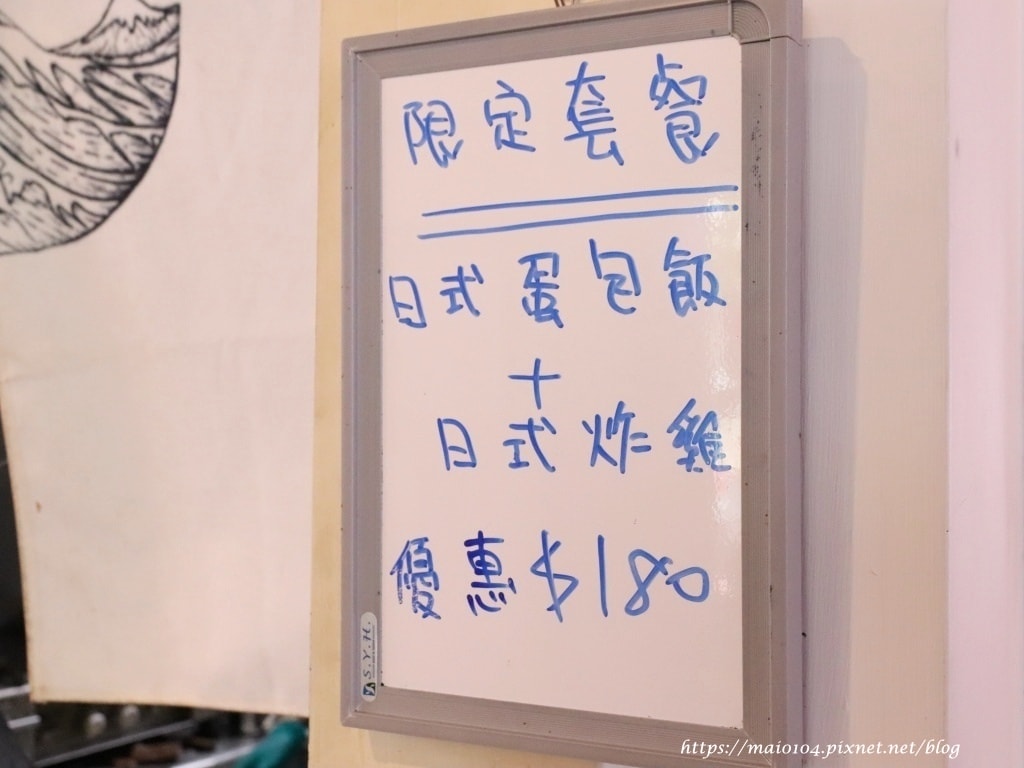 限定套餐
日式蛋包飯
+
日式炸雞
優惠$180
S.Y.H.
https://maio104.pixnet.net/blog